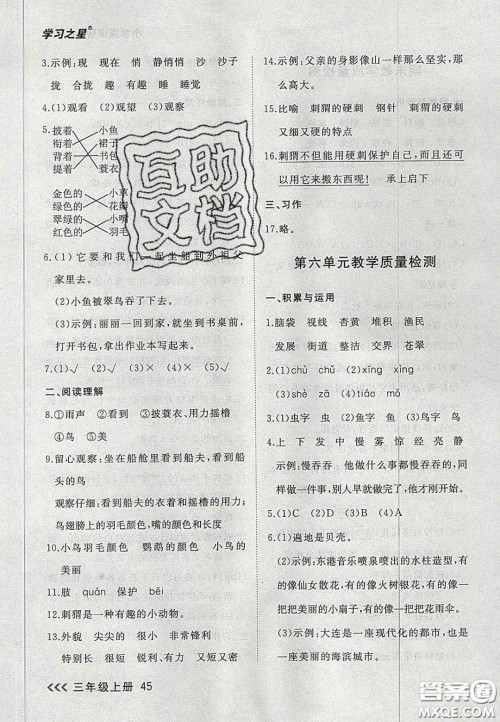 学习之星
3.示例:现 现在 悄 静悄悄 沙 沙子
拢 合拢 趣 有趣 睡 睡觉
4.(1)观看 (2)观望 (3)观察
5.
披着 小鱼
衔着 裙子
背着 书包
提着 蓑衣
金色的 小草
绿色的 花瓣
翠绿的 小嘴
红色的 羽毛
6.(1)它要和我们一起坐船到外祖父
家里去。
(2)小鱼被翠鸟吞了下去。
(3)示例:丽丽一回到家,就坐到书桌前,
打开书包,拿出作业本写起来。
7.(1)√ (2)√ (3)× (4)× (5)√
二、阅读理解
8.①雨声 ②看到 ③披蓑衣、用力摇橹
④鸟 ⑤美
9.留心观察:坐在船舱里看到船夫和在船头
看到鸟
观察仔细:看到船夫的衣着和摇橹的用力;
鸟翅膀上的羽毛颜色、嘴的大小与颜色
10.小鸟羽毛颜色 鹦鹉的颜色 小鸟的
美丽
11.肢 quán 保护 bēi
12.刺猬是一种有趣的小动物。
13.外貌 尖尖的 很小 非常锋利
特别长 很短 又细又长 很短
三年级上册 45
14.示例:父亲的身影像山一样那么坚实,那
么高大。
15.比喻 刺猬的硬刺 钢针 刺猬的硬刺
又细又硬的特点
16.刺猬不但能用硬刺保护自己,而且还可
以用它来搬东西呢! 承上启下
三、习作
17.略。
第六单元教学质量检测
一、积累与运用
1.脑袋 视线 杏黄 堆积 渔民
发展 街道 整洁 交界 苍翠
2.(1)chù chǔ (2)xīng xìng
(3)shè sè (4)tiáo mǒ
3.(1)虫字 虫 (2)鱼字 鱼 (3)鸟字 鸟
4.上 下 发 中 慢 雾 惊 经 亮 静
示例:慢吞吞 他做什么事都慢吞吞的。
大家的事都快做完了,他才刚开始。
5.(1)遍地是贝壳。
(2)示例:东港音乐喷泉喷出的水柱造型,有
的像仙女散花,有的像火树银花,有的像一
把把美丽的小扇子,有的像一把把利剑。
(3)示例:大连是一座现代化的都市,也是一
座美丽的海滨城市。
互助
文档
答案圈
MXQE.COM